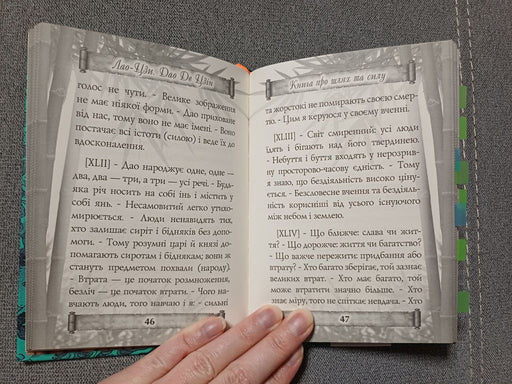 Лао-Цзи. Дао Де Цзін
голос не чути. - Велике зображення
не має ніякої форми, - Дао приховане
від нас, тому воно не має імені - Воно
постачає всі істоти (силою) і веде їх до
вдосконалення.
[XLII] - Дао народжує одне, одне —
два, два — три, а три — усі речі. - Будь-
яка річ носить на собі інь і містить у
собі янь. - Несамовитий легко утихо-
мирюється. - Люди ненавидять тих,
хто залишає сиріт і бідняків без допо-
моги. - Тому розумні царі й князі до-
помагають сиротам і біднякам; вони ж
стануть предметом похвали (народу).
- Втрата — це початок розмноження,
безліч — це початок втрати. - Чого на-
вчають люди, того навчаю і я: - сильні
46
Книга про шлях та силу
та жорстокі не помирають своєю смер-
тю. - Цим я керуюся у своєму вченні.
[XLIII] - Світ смиренний: усі люди
їдять і бігають над його твердинею.
- Небуття і буття входять у нерозрив-
ну просторово-часову єдність. - Тому
я знаю, що бездіяльність високо ціну-
ється. - Безсловесне вчення та бездіяль-
ність корисніші від усього існуючого
між небом і землею.
[XLIV] - Що ближче: слава чи жит-
тя? - Що дорожче: життя чи багатство?
- Що важче пережити: придбання або
втрату? - Хто багато зберігає, той зазнає
великих втрат. - Хто має багато, той
може втратити значно більше. - Хто
знає міру, того не спіткає невдача. - Хто
47